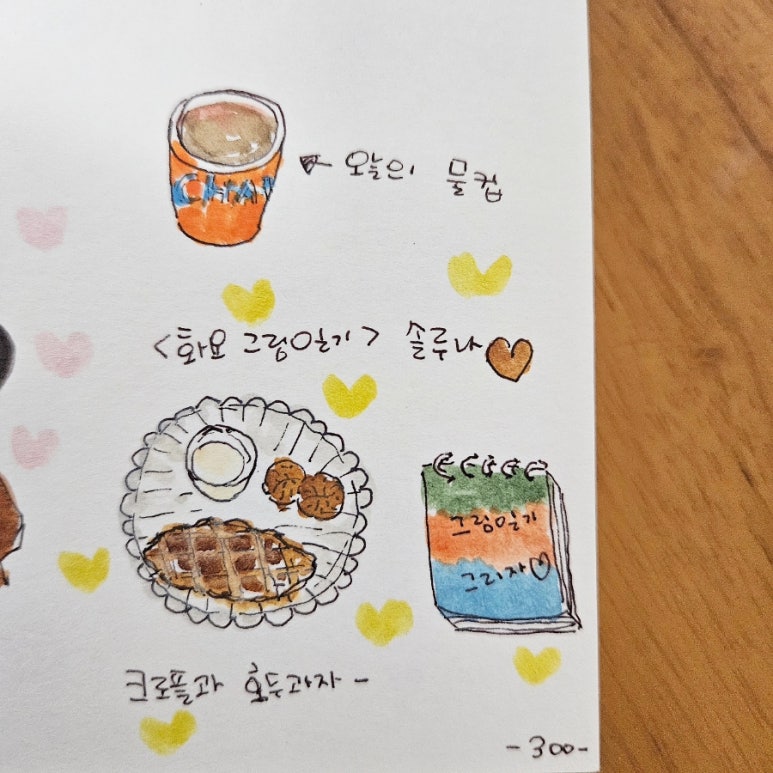 오늘의 물컵
CHAI
<화요 그림일기> 솔루나
그림일기
그리자♡
크로플과 호두과자-
-300-